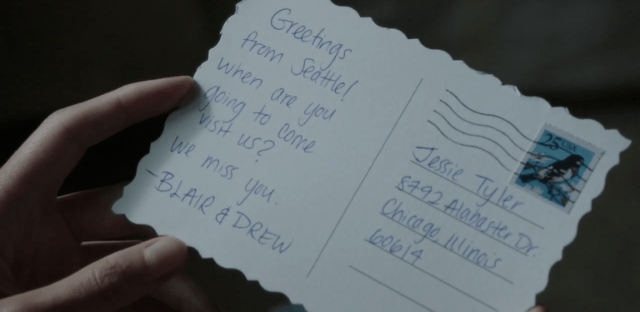 Greetings
from Seattle!
when are you
going to come
visit us?
we miss you.
-BLAIR & DREW
25 USA
Jessie Tyler
8792 Alabaster Dr.
Chicago, Illinois
60614